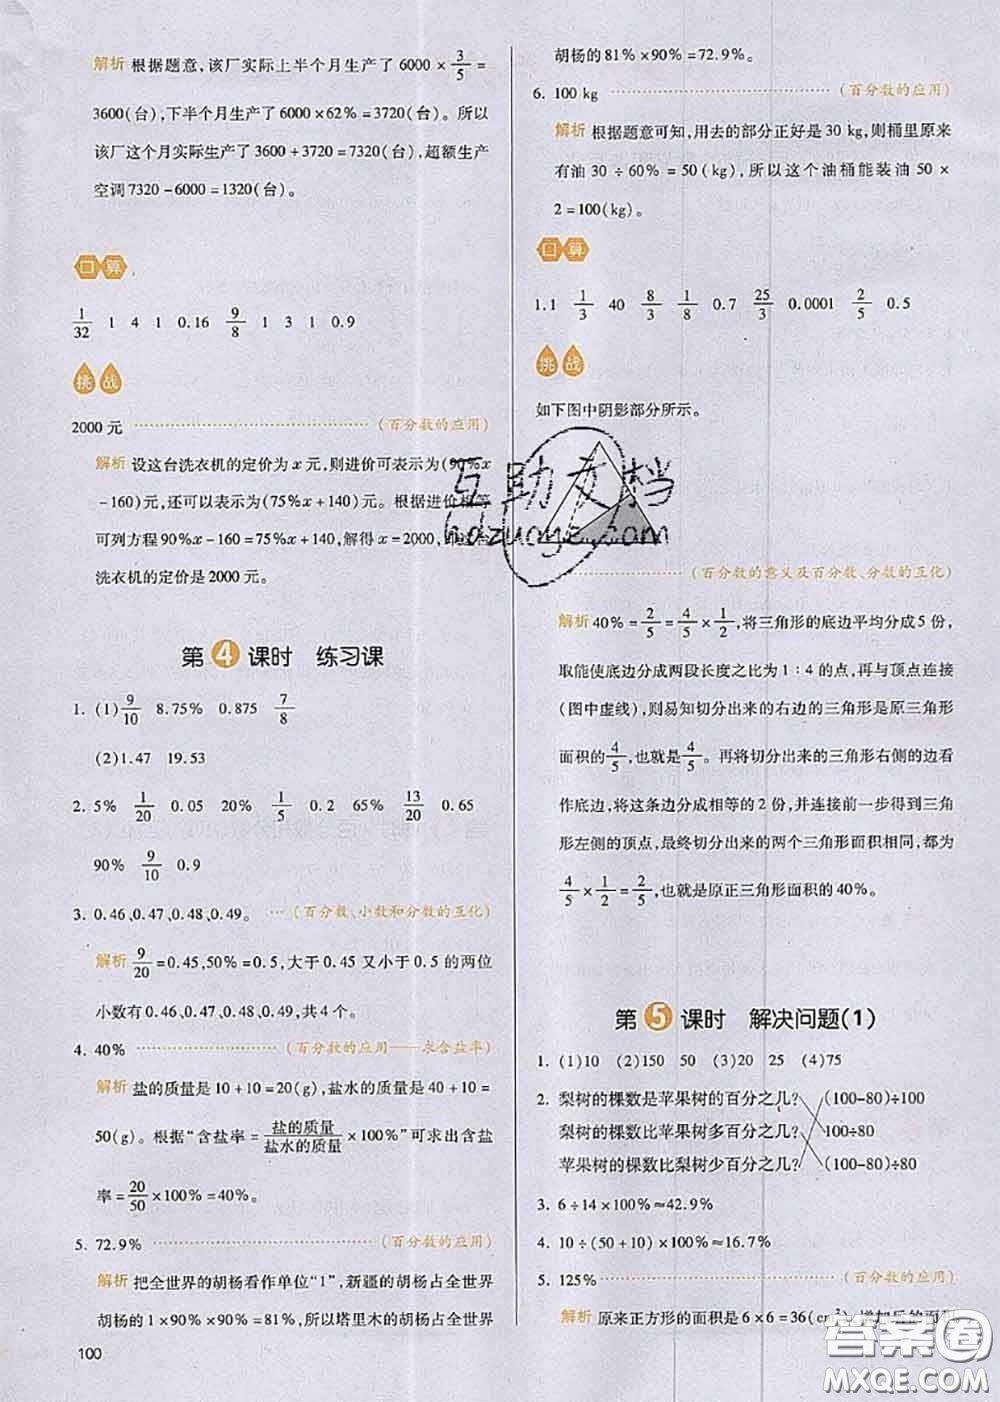 解析 根据题意,该厂实际上半个月生产了 6000 × 3/5 =
3600(台),下半个月生产了 6000×62% = 3720(台)。所以
该厂这个月实际生产了 3600+3720=7320(台),超额生产
空调 7320-6000=1320(台)。
口算
1/32 1 4 1 0.16 9/8 1 3 1 0.9
挑战
2000 元 (百分数的应用)
解析 设这台洗衣机的定价为 x 元,则进价可表示为(90%x
-160)元,还可以表示为(75%x+140)元。根据进价相等
可列方程 90%x-160=75%x+140,解得 x=2000,即这台
洗衣机的定价是 2000 元。
第4课时 练习课
1. (1) 9/10 8.75% 0.875 7/8
(2)1.47 19.53
2. 5% 1/20 0.05 20% 1/5 0.2 65% 13/20 0.65
90% 9/10 0.9
3. 0.46、0.47、0.48、0.49。 (百分数、小数和分数的互化)
解析 9/20 = 0.45,50% = 0.5,大于 0.45 又小于 0.5 的两位
小数有 0.46、0.47、0.48、0.49,共 4 个。
4. 40% (百分数的应用——求含盐率)
解析 盐的质量是 10+10=20(g),盐水的质量是 40+10=
50(g)。根据“含盐率= 盐的质量/盐水的质量 ×100%”可求出含盐
率= 20/50 ×100% = 40%。
5. 72.9% (百分数的应用)
解析 把全世界的胡杨看作单位“1”,新疆的胡杨占全世界
胡杨的 1×90%×90% = 81%,所以塔里木的胡杨占全世界
100
胡杨的 81%×90% = 72.9%。
6. 100 kg (百分数的应用)
解析 根据题意可知,用去的部分正好是 30 kg,则桶里原来
有油 30÷60% = 50(kg),所以这个油桶能装油 50×
2=100(kg)。
口算
1.1 1/3 40 8/3 1/8 0.7 25/3 0.0001 2/5 0.5
挑战
如下图中阴影部分所示。
互助文档
hdzuoye.com
(百分数的意义及百分数、分数的互化)
解析 40% = 2/5 = 4/5 × 1/2 ,将三角形的底边平均分成 5 份,
取能使底边分成两段长度之比为 1:4 的点,再与顶点连接
(图中虚线),则易知切分出来的右边的三角形是原三角形
面积的 4/5 ,也就是 4/5 。再将切分出来的三角形右侧的边看
作底边,将这条边分成相等的 2 份,并连接前一步得到三角
形左侧的顶点,最终切分出来的两个三角形面积相等,都为
4/5 × 1/2 = 2/5 ,也就是原正三角形面积的 40%。
第5课时 解决问题(1)
1. (1)10 (2)150 50 (3)20 25 (4)75
2. 梨树的棵数是苹果树的百分之几? (100-80)÷100
梨树的棵数比苹果树多百分之几? 100÷80
苹果树的棵数比梨树少百分之几? (100-80)÷80
3. 6÷14×100%≈42.9%
4. 10÷(50+10)×100%≈16.7%
5. 125% (百分数的应用)
解析 原来正方形的面积是 6×6=36(cm²),增加后的面积
答案圈
MXQE.COM